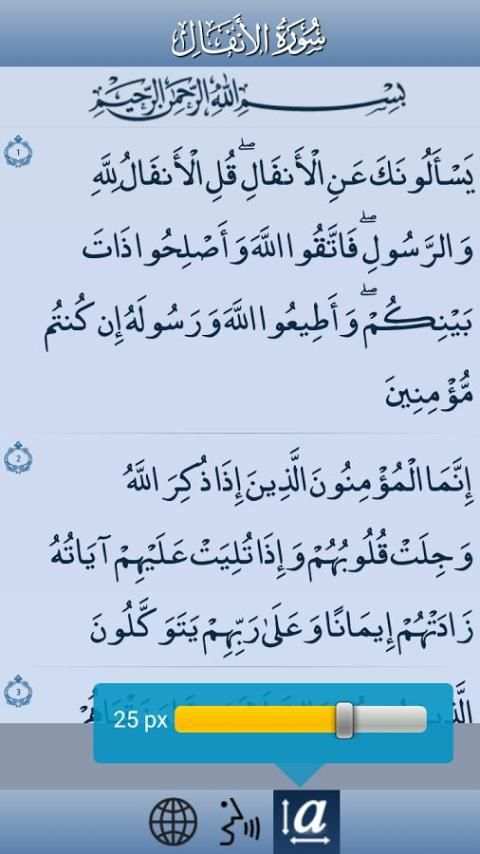 سُورَةُ الأَنْفَالِ
بِسْمِ اللهِ الرَّحْمَنِ الرَّحِيمِ
1
يَسْأَلُونَكَ عَنِ الْأَنفَالِ ۖ قُلِ الْأَنفَالُ لِلَّهِ
وَالرَّسُولِ ۖ فَاتَّقُوا اللَّهَ وَأَصْلِحُوا ذَاتَ
بَيْنِكُمْ ۖ وَأَطِيعُوا اللَّهَ وَرَسُولَهُ إِن كُنتُم
مُّؤْمِنِينَ
2
إِنَّمَا الْمُؤْمِنُونَ الَّذِينَ إِذَا ذُكِرَ اللَّهُ
وَجِلَتْ قُلُوبُهُمْ وَإِذَا تُلِيَتْ عَلَيْهِمْ آيَاتُهُ
زَادَتْهُمْ إِيمَانًا وَعَلَىٰ رَبِّهِمْ يَتَوَكَّلُونَ
3
25 px
a